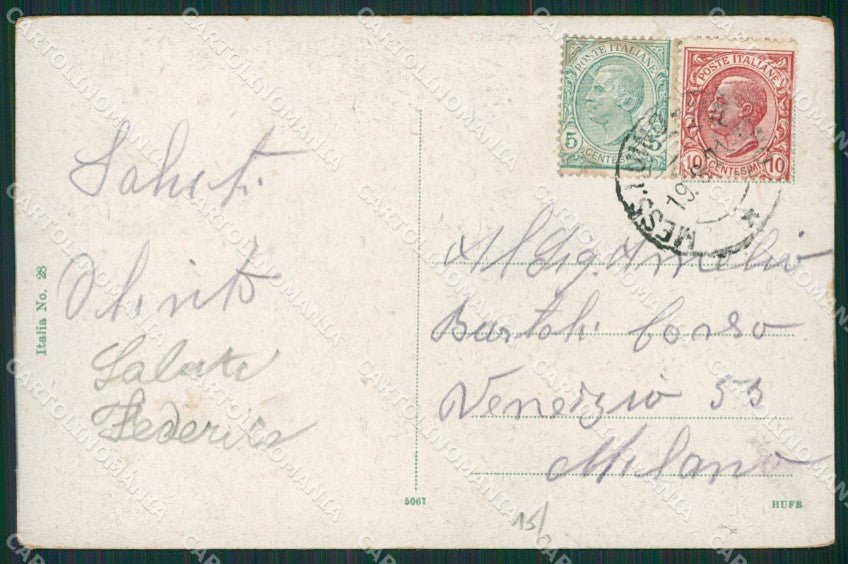 POSTE ITALIANE
5
CENTESIMI
POSTE ITALIANE
10 10
CENTESIMI
MESS
19
Saluti
Olinto
Salute
Federico
Al Sig. Amelio
Bartoli Corso
Venezia 53
Milano
Italia No. 28
5067
HUFE
15/
CARTOLINOMANIA